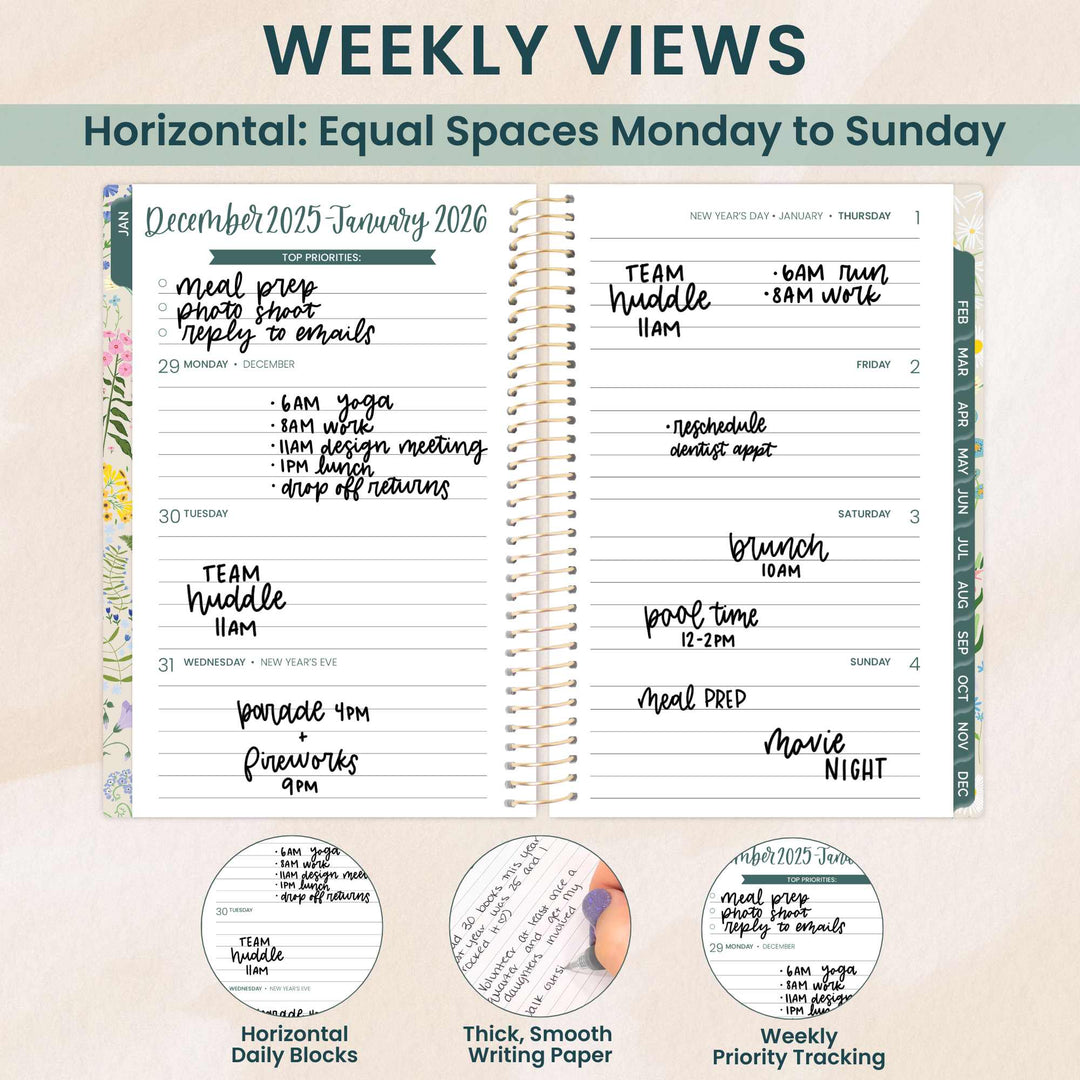 WEEKLY VIEWS
Horizontal: Equal Spaces Monday to Sunday
JAN
December 2025-January 2026
TOP PRIORITIES:
meal prep
photo shoot
reply to emails
29 MONDAY • DECEMBER
• 6AM yoga
• 8AM work
• 11AM design meeting
• 1PM lunch
• drop off returns
30 TUESDAY
TEAM
huddle
11AM
31 WEDNESDAY • NEW YEAR'S EVE
parade 4PM
+
fireworks
9PM
NEW YEAR'S DAY • JANUARY • THURSDAY 1
TEAM
huddle
11AM
• 6AM run
• 8AM work
FRIDAY 2
• reschedule
dentist appt
SATURDAY 3
brunch
10AM
pool time
12-2PM
SUNDAY 4
meal PREP
movie
NIGHT
FEB
MAR
APR
MAY
JUN
JUL
AUG
SEP
OCT
NOV
DEC
• 6AM yoga
• 8AM work
• 11AM design meet
• 1PM lunch
• drop off returns
30 TUESDAY
TEAM
huddle
11AM
WEDNESDAY • NEW YEAR'S EVE
Horizontal
Daily Blocks
30 books this year
year was 25 and I
rocked it
Volunteer at least once a
quarter and get my
daughters involved
Thick, Smooth
Writing Paper
mber 2025-Janu
TOP PRIORITIES:
meal prep
photo shoot
reply to emails
29 MONDAY • DECEMBER
• 6AM yoga
• 8AM work
• 11AM design
• 1PM
Weekly
Priority Tracking